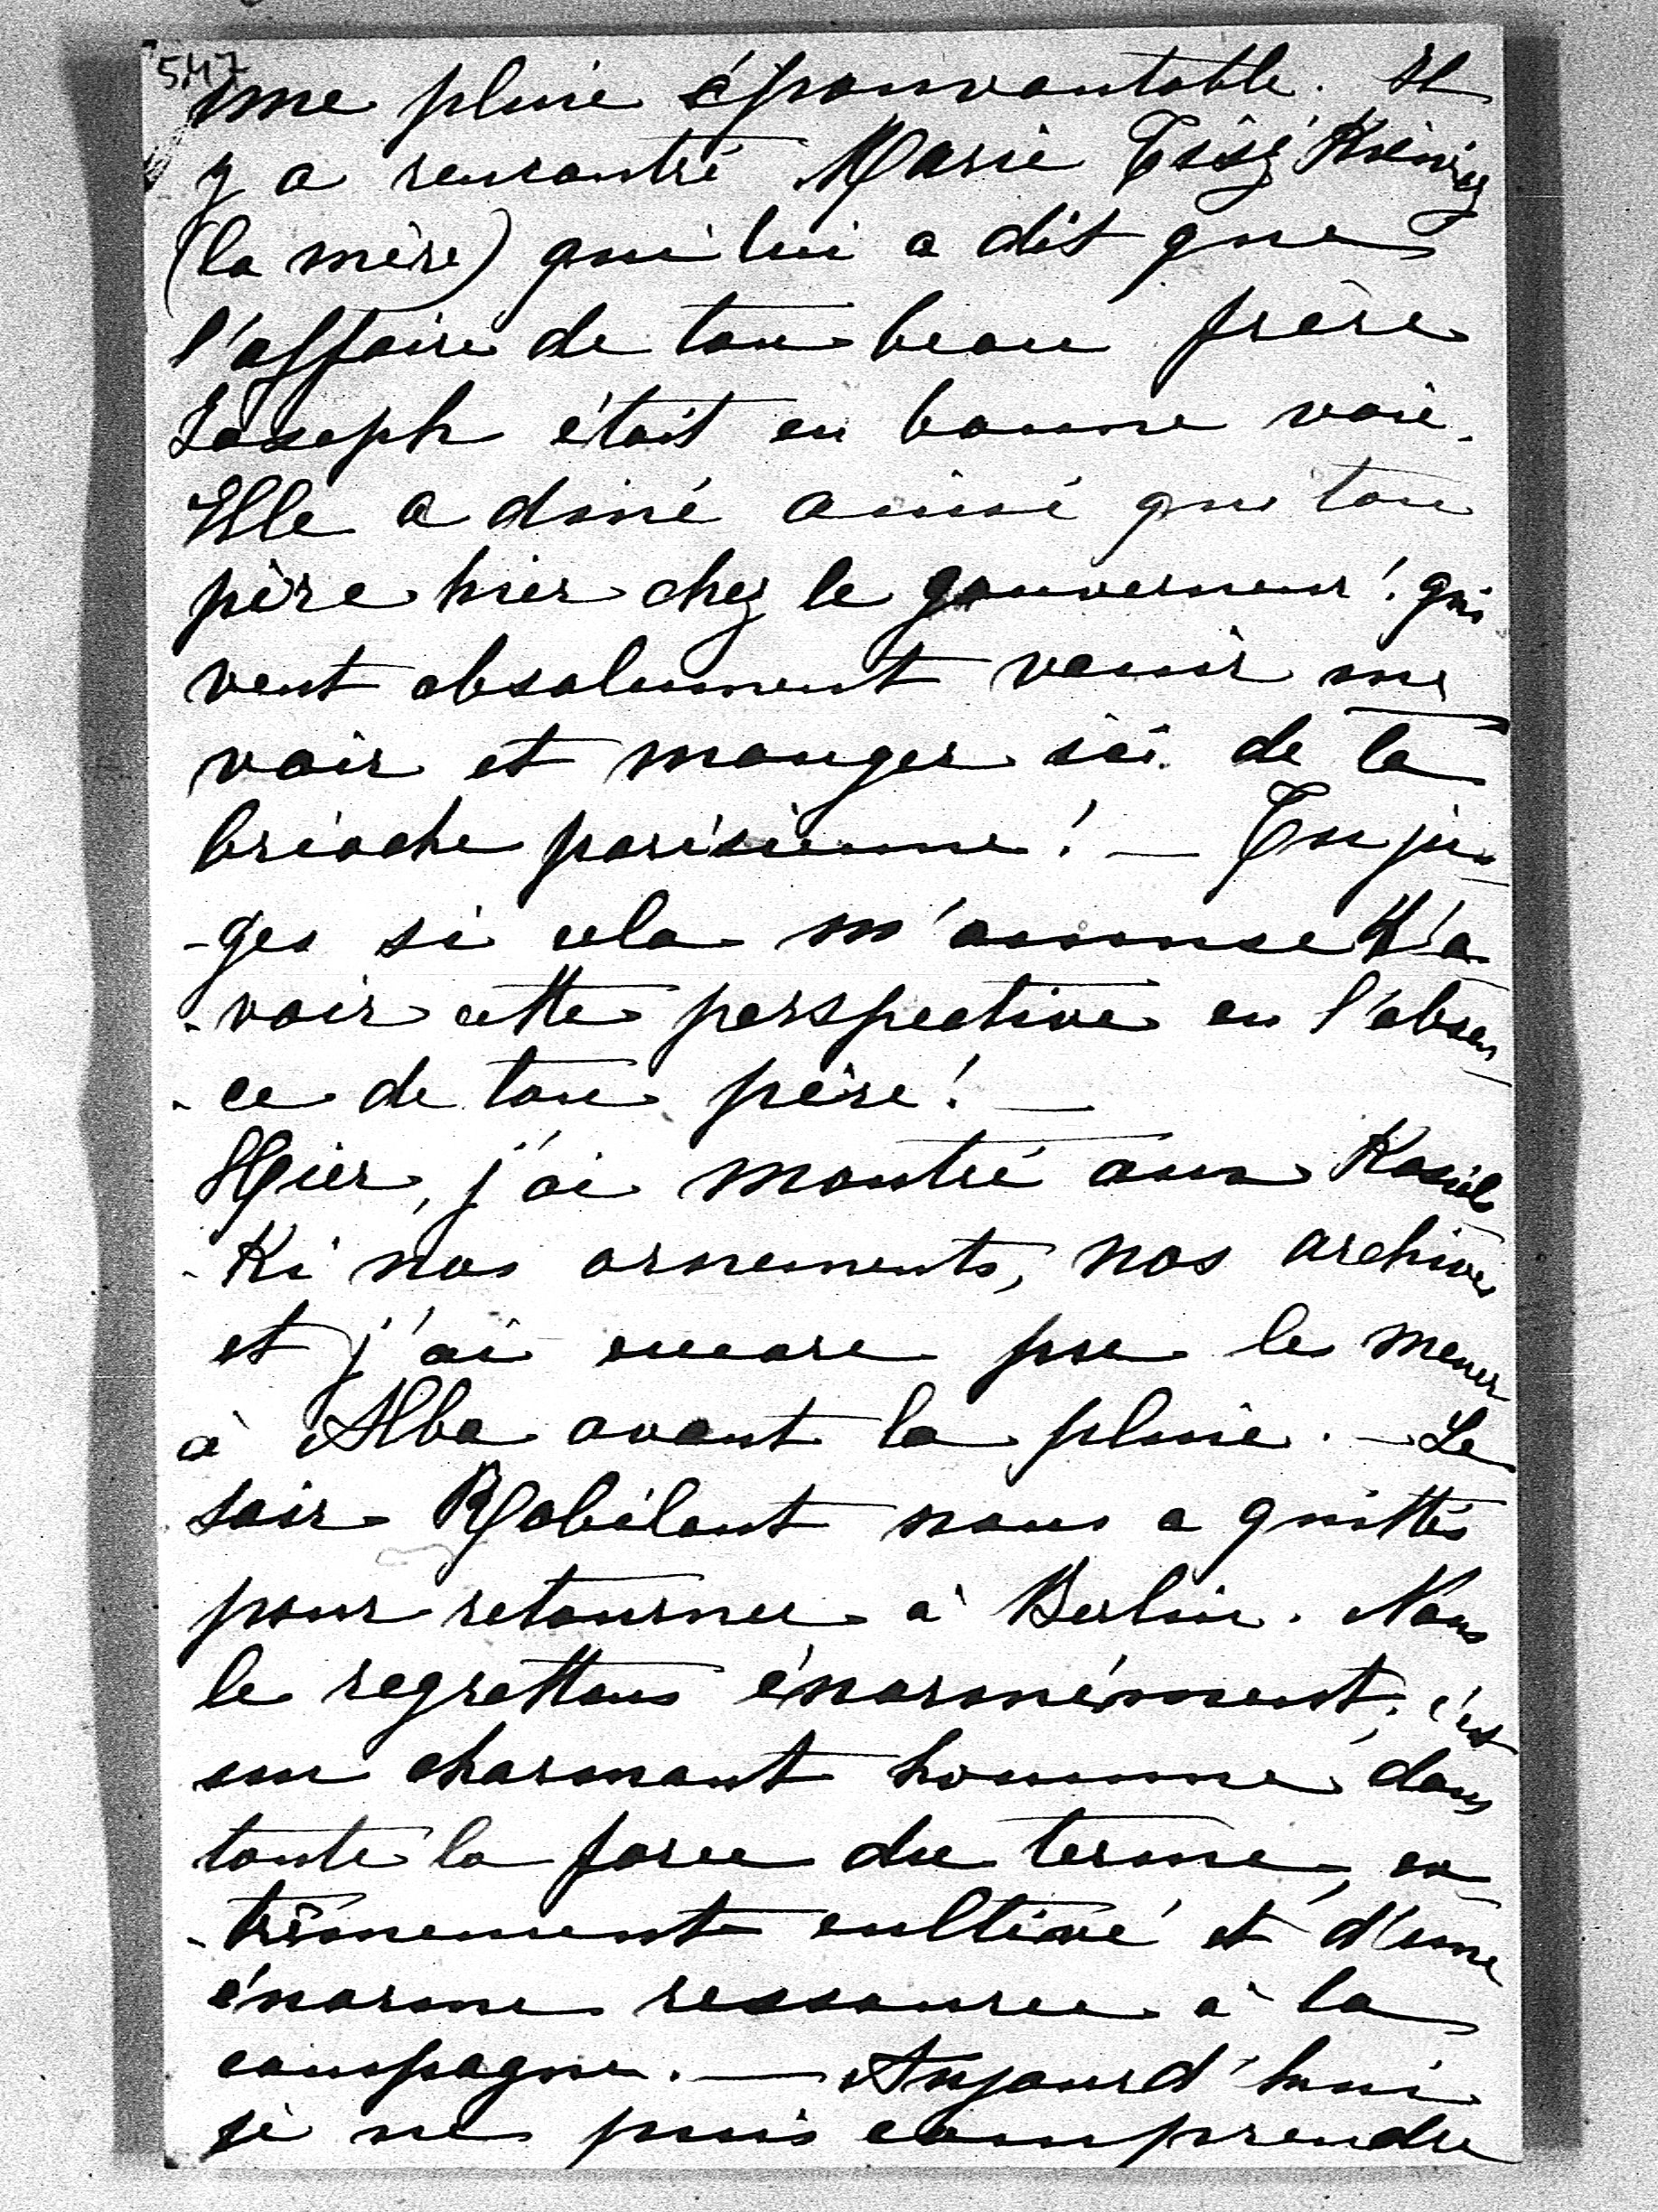 547
une pluie épouvantable. Il
y a rencontré Marie Tisz
(la mère) qui lui a dit que
l'affaire de ton beau frère
Joseph était en bonne voie.
Elle a diné ainsi que ton
père hier chez le gouverneur! qui
veut absolument venir me
voir et manger ici de la
brioche parisienne! — Tu ju-
-ges si cela m'amuse d'a
-voir cette perspective en l'absen-
-ce de ton père! —
Hier, j'ai montré aux Kosiels
-Ki nos ornements, nos archives
et j'ai encore pu les mener
à Alba avant la pluie. — Le
soir Robilant nous a quittés
pour retourner à Berlin. Nous
le regrettons énormément; c'est
un charmant homme dans
toute la force du terme, ex-
-trêmement cultivé et d'une
énorme ressource à la
campagne. — Aujourd'hui
je ne puis comprendre